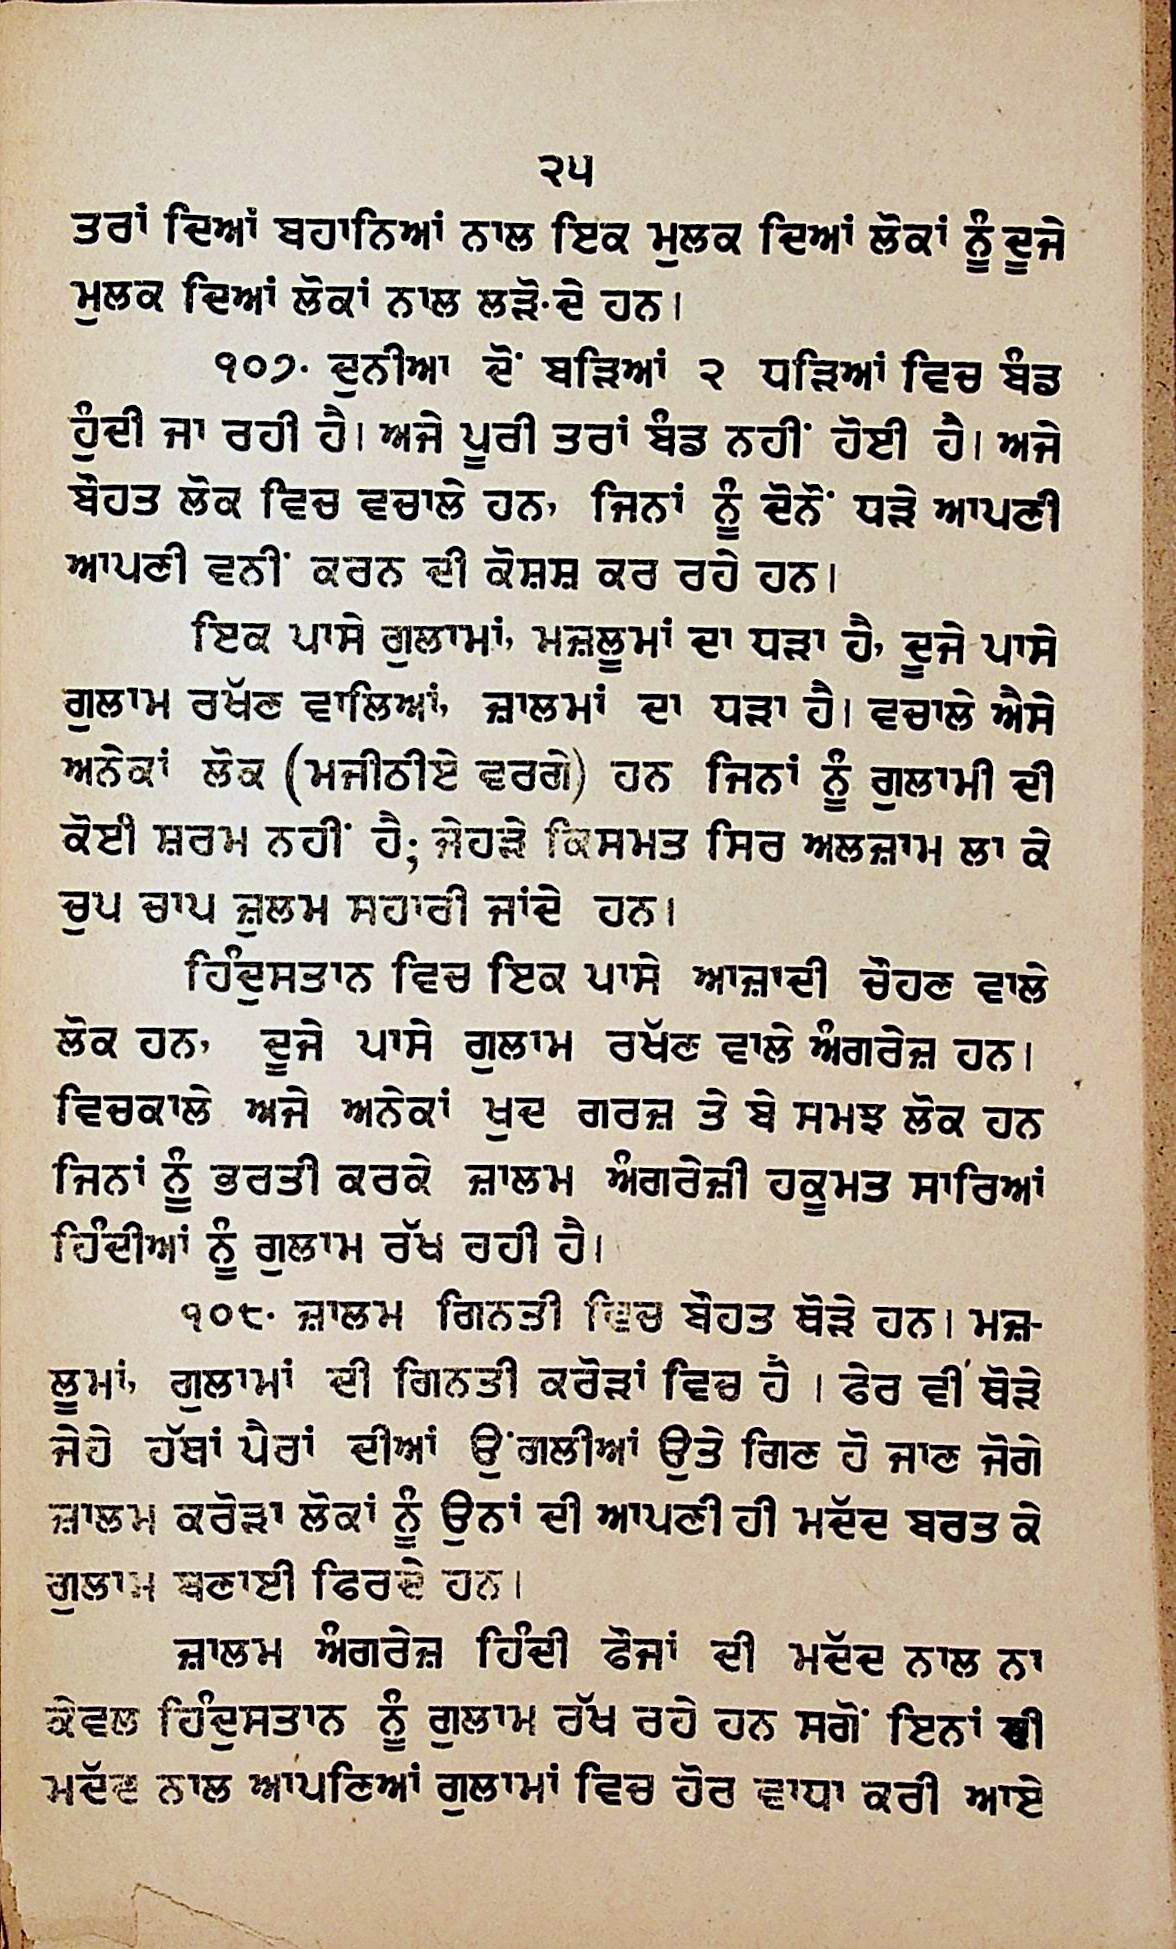 ੨੫
ਤਰਾਂ ਦਿਆਂ ਬਹਾਨਿਆਂ ਨਾਲ ਇਕ ਮੁਲਕ ਦਿਆਂ ਲੋਕਾਂ ਨੂੰ ਦੂਜੇ
ਮੁਲਕ ਦਿਆਂ ਲੋਕਾਂ ਨਾਲ ਲੜੋਂਦੇ ਹਨ।
੧੦੭. ਦੁਨੀਆ ਦੋਂ ਬੜਿਆਂ ੨ ਧੜਿਆਂ ਵਿਚ ਬੰਡ
ਹੁੰਦੀ ਜਾ ਰਹੀ ਹੈ। ਅਜੇ ਪੂਰੀ ਤਰਾਂ ਬੰਡ ਨਹੀਂ ਹੋਈ ਹੈ। ਅਜੇ
ਬੌਹਤ ਲੋਕ ਵਿਚ ਵਚਾਲੇ ਹਨ, ਜਿਨਾਂ ਨੂੰ ਦੋਨੋਂ ਧੜੇ ਆਪਣੀ
ਆਪਣੀ ਵਨੀਂ ਕਰਨ ਦੀ ਕੋਸ਼ਸ਼ ਕਰ ਰਹੇ ਹਨ।
ਇਕ ਪਾਸੇ ਗੁਲਾਮਾਂ, ਮਜ਼ਲੂਮਾਂ ਦਾ ਧੜਾ ਹੈ, ਦੂਜੇ ਪਾਸੇ
ਗੁਲਾਮ ਰਖੱਣ ਵਾਲਿਆਂ, ਜ਼ਾਲਮਾਂ ਦਾ ਧੜਾ ਹੈ। ਵਚਾਲੇ ਐਸੇ
ਅਨੇਕਾਂ ਲੋਕ (ਮਜੀਠੀਏ ਵਰਗੇ) ਹਨ ਜਿਨਾਂ ਨੂੰ ਗੁਲਾਮੀ ਦੀ
ਕੋਈ ਸ਼ਰਮ ਨਹੀਂ ਹੈ; ਜੇਹੜੇ ਕਿਸਮਤ ਸਿਰ ਅਲਜ਼ਾਮ ਲਾ ਕੇ
ਚੁਪ ਚਾਪ ਜ਼ੁਲਮ ਸਹਾਰੀ ਜਾਂਦੇ ਹਨ।
ਹਿੰਦੁਸਤਾਨ ਵਿਚ ਇਕ ਪਾਸੇ ਆਜ਼ਾਦੀ ਚੌਹਣ ਵਾਲੇ
ਲੋਕ ਹਨ, ਦੂਜੇ ਪਾਸੇ ਗੁਲਾਮ ਰਖੱਣ ਵਾਲੇ ਅੰਗਰੇਜ਼ ਹਨ।
ਵਿਚਕਾਲੇ ਅਜੇ ਅਨੇਕਾਂ ਖੁਦ ਗਰਜ਼ ਤੇ ਬੇ ਸਮਝ ਲੋਕ ਹਨ
ਜਿਨਾਂ ਨੂੰ ਭਰਤੀ ਕਰਕੇ ਜ਼ਾਲਮ ਅੰਗਰੇਜ਼ੀ ਹਕੂਮਤ ਸਾਰਿਆਂ
ਹਿੰਦੀਆਂ ਨੂੰ ਗੁਲਾਮ ਰੱਖ ਰਹੀ ਹੈ।
੧੦੮. ਜ਼ਾਲਮ ਗਿਨਤੀ ਵਿਚ ਬੌਹਤ ਥੋੜੇ ਹਨ। ਮਜ਼-
ਲੂਮਾਂ, ਗੁਲਾਮਾਂ ਦੀ ਗਿਨਤੀ ਕਰੋੜਾਂ ਵਿਚ ਹੈ। ਫੇਰ ਵੀ ਥੋੜੇ
ਜੇਹੇ ਹੱਥਾਂ ਪੈਰਾਂ ਦੀਆਂ ਉਂਗਲੀਆਂ ਉਤੇ ਗਿਣ ਹੋ ਜਾਣ ਜੋਗੇ
ਜ਼ਾਲਮ ਕਰੋੜਾ ਲੋਕਾਂ ਨੂੰ ਉਨਾਂ ਦੀ ਆਪਣੀ ਹੀ ਮਦੱਦ ਬਰਤ ਕੇ
ਗੁਲਾਮ ਬਣਾਈ ਫਿਰਦੇ ਹਨ।
ਜ਼ਾਲਮ ਅੰਗਰੇਜ਼ ਹਿੰਦੀ ਫੌਜਾਂ ਦੀ ਮਦੱਦ ਨਾਲ ਨਾ
ਕੇਵਲ ਹਿੰਦੁਸਤਾਨ ਨੂੰ ਗੁਲਾਮ ਰੱਖ ਰਹੇ ਹਨ ਸਗੋਂ ਇਨਾਂ ਦੀ
ਮਦੱਦ ਨਾਲ ਆਪਣਿਆਂ ਗੁਲਾਮਾਂ ਵਿਚ ਹੋਰ ਵਾਧਾ ਕਰੀ ਆਏ